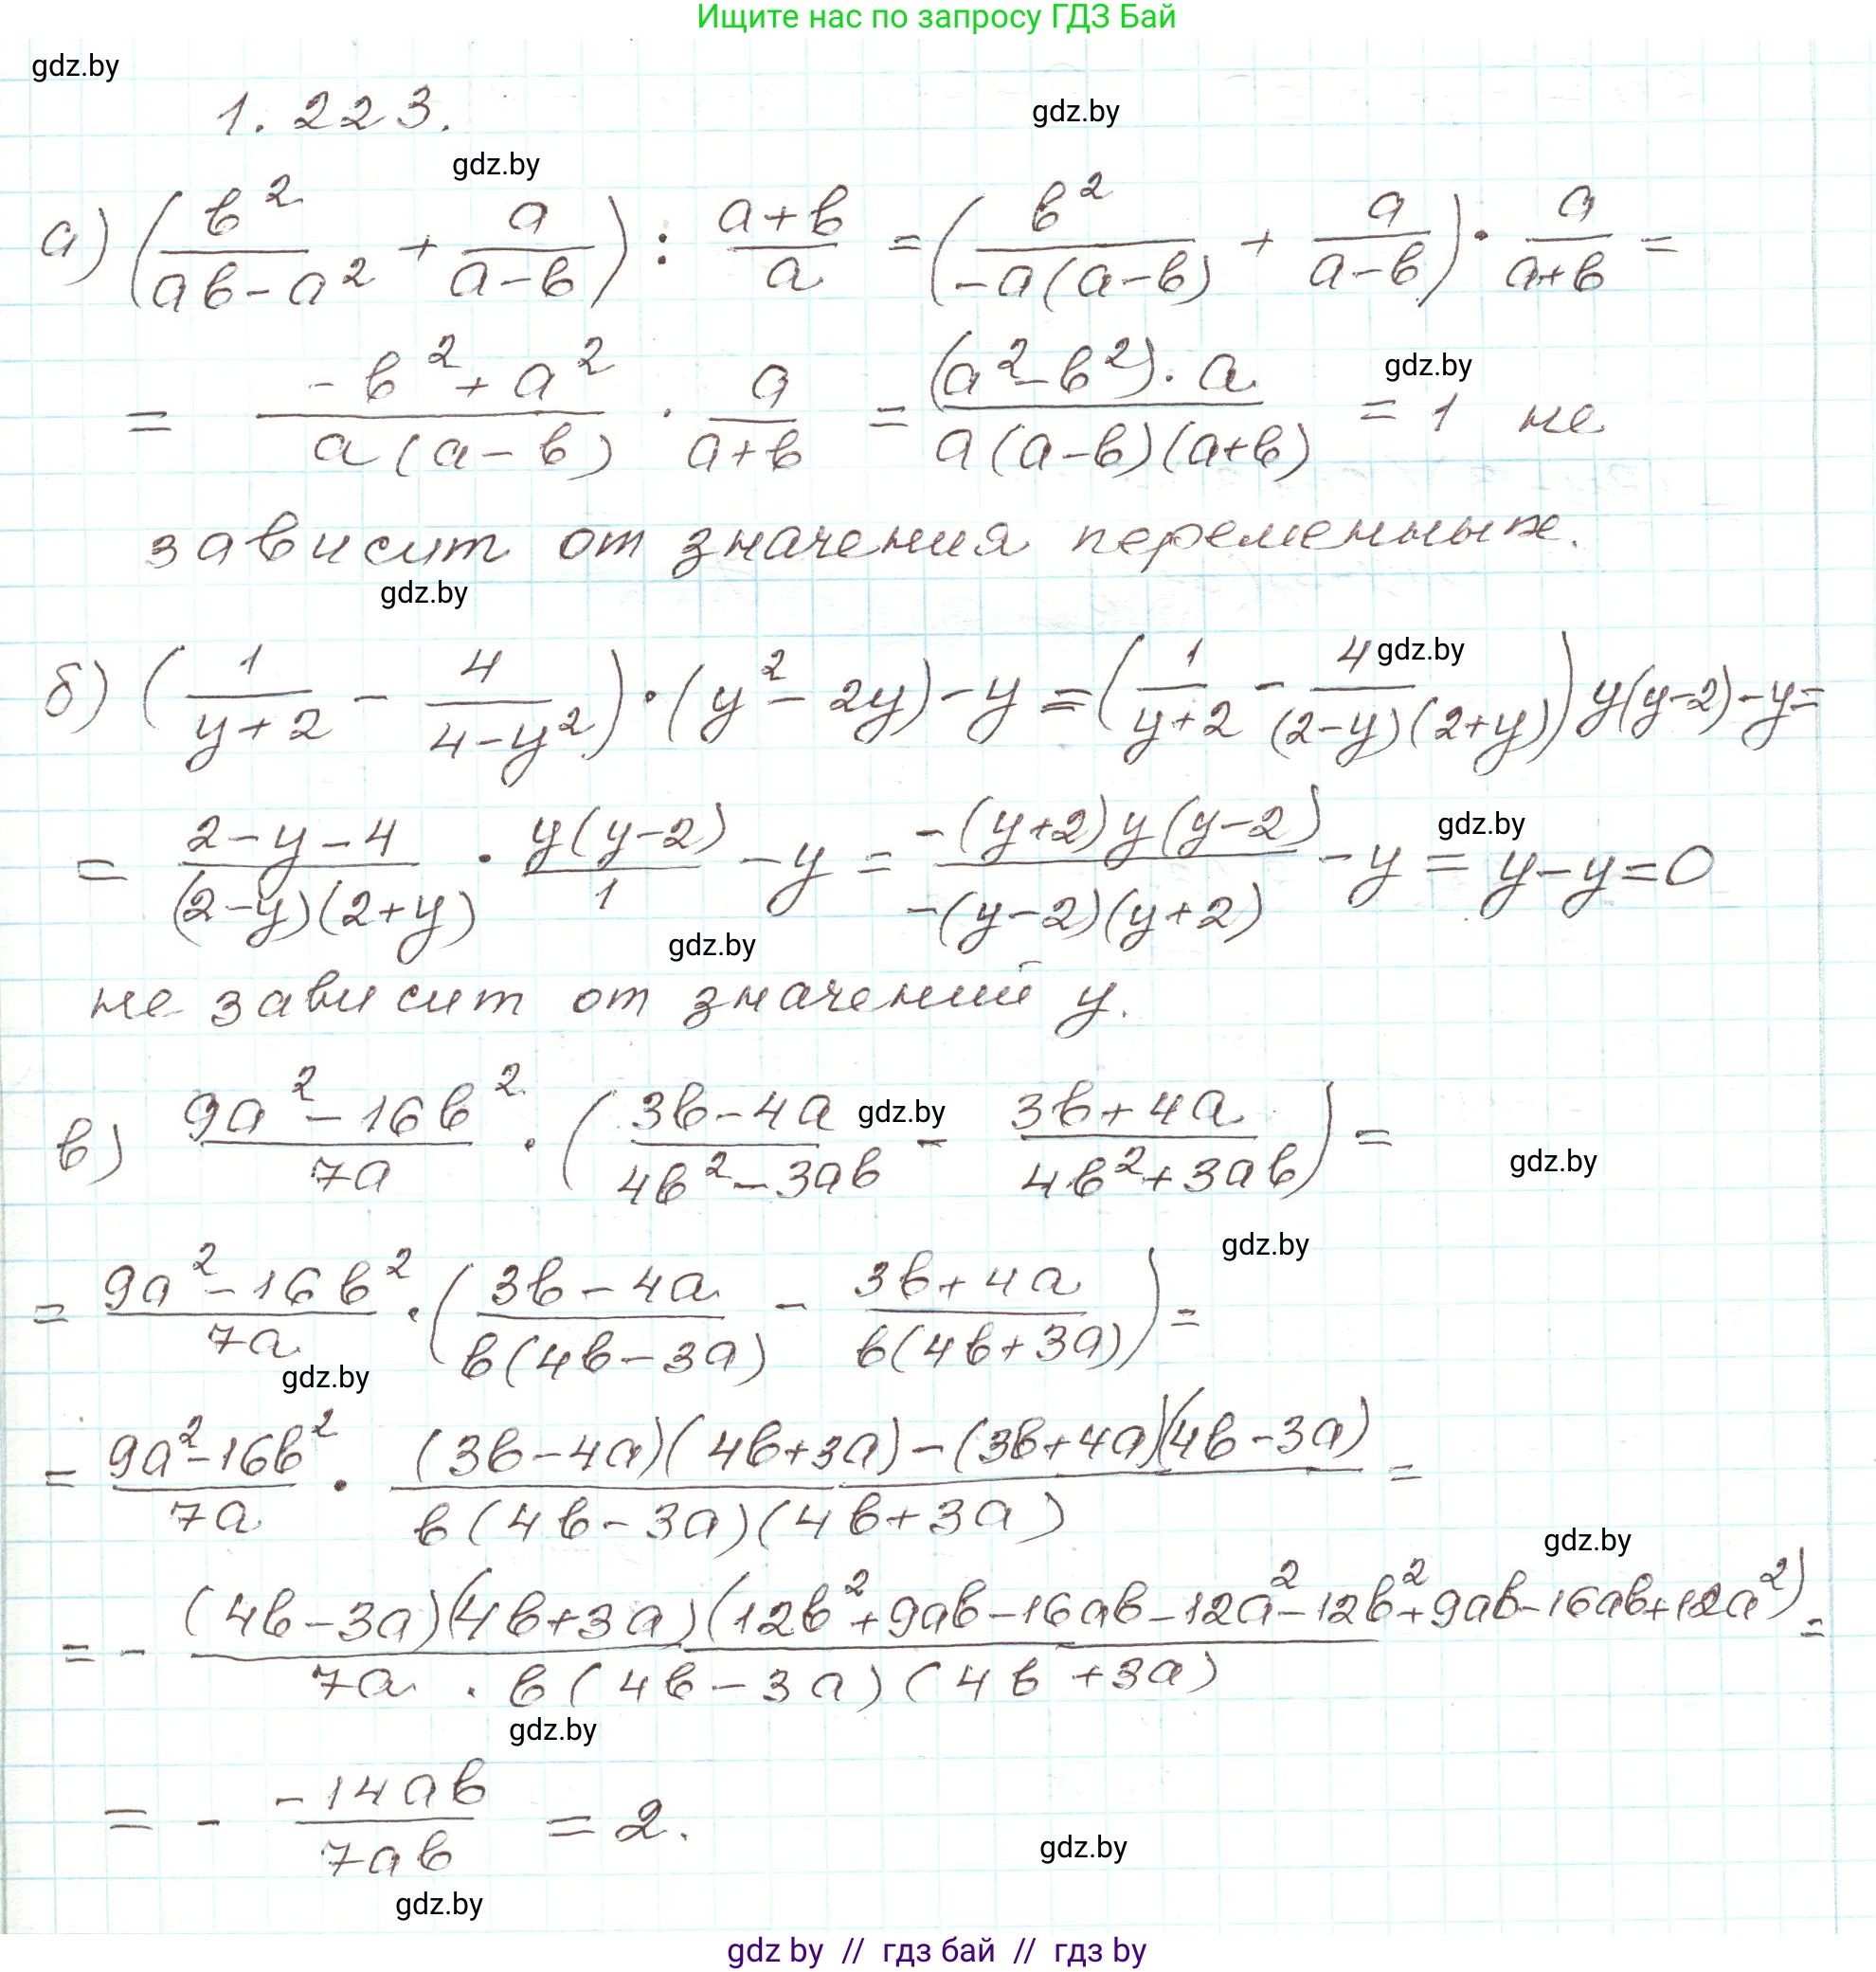 Ищите нас по запросу ГДЗ Бай
gdz.by
1.223.
gdz.by
gdz.by
а) (b²/(ab-a²) + a/(a-b)) : (a+b)/a = (b²/(-a(a-b)) + a/(a-b)) · a/(a+b) =
= (-b²+a²)/(a(a-b)) · a/(a+b) = ((a²-b²)·a)/(a(a-b)(a+b)) = 1 не
gdz.by
зависит от значения переменных.
gdz.by
б) (1/(y+2) - 4/(4-y²)) · (y²-2y) - y = (1/(y+2) - 4/((2-y)(2+y))) y(y-2) - y =
gdz.by
= (2-y-4)/((2-y)(2+y)) · y(y-2)/1 - y = (-(y+2)y(y-2))/(-(y-2)(y+2)) - y = y-y=0
gdz.by
gdz.by
не зависит от значений y.
в) (9a²-16b²)/7a · ((3b-4a)/(4b²-3ab) - (3b+4a)/(4b²+3ab)) =
gdz.by
gdz.by
= (9a²-16b²)/7a · ((3b-4a)/(b(4b-3a)) - (3b+4a)/(b(4b+3a))) =
gdz.by
gdz.by
= (9a²-16b²)/7a · ((3b-4a)(4b+3a)-(3b+4a)(4b-3a))/(b(4b-3a)(4b+3a)) =
gdz.by
= - ((4b-3a)(4b+3a)(12b²+9ab-16ab-12a²-12b²+9ab-16ab+12a²))/(7a·b(4b-3a)(4b+3a)) =
gdz.by
= - (-14ab)/(7ab) = 2.
gdz.by
gdz.by
gdz by // гдз бай // гдз by